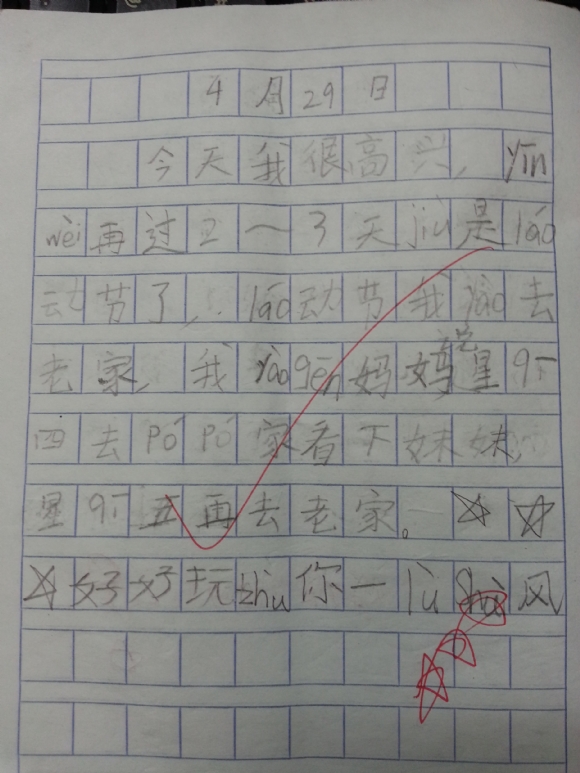 4月29日
今天我很高兴，yīn
wèi再过2～3天jiù是láo
动节了，láo动节我yào去
老家，我yào gēn妈妈说星qī
四去pó pó家看下妹妹，
星qī五再去老家。☆☆
☆好好玩zhù你一lù shùn风